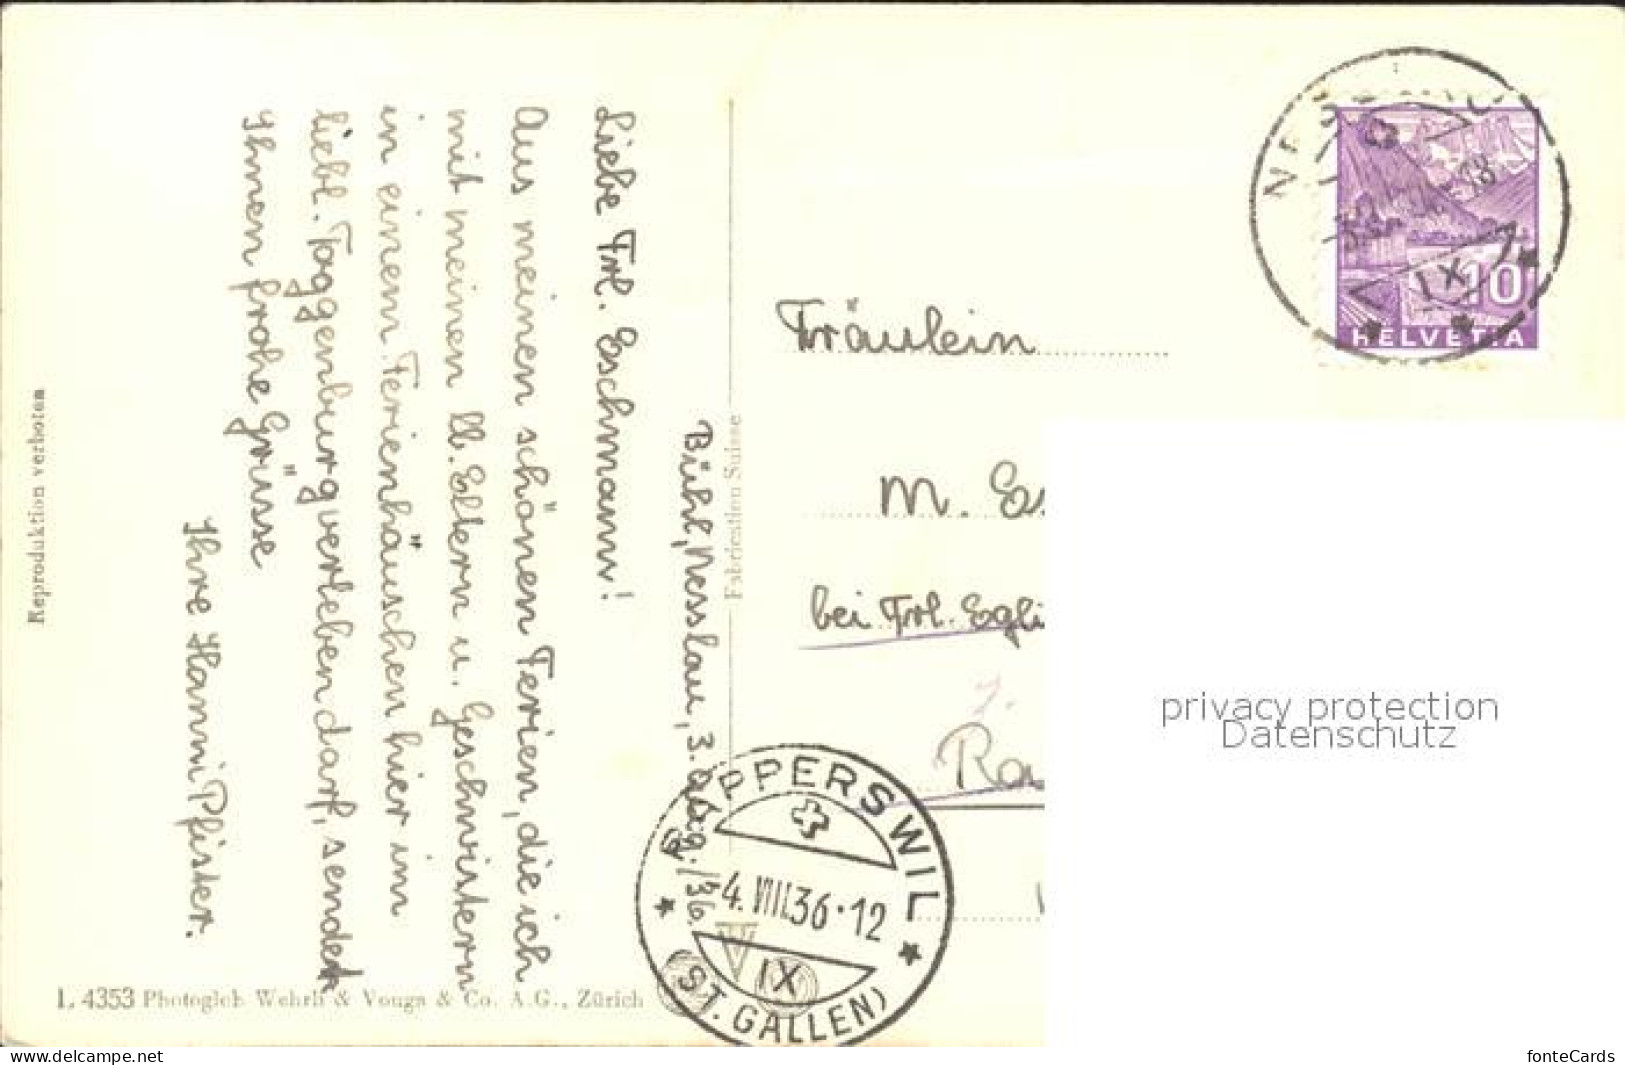 Bühl, Nesslau, 3. Aug. /36.
Liebe Frl. Eschmann!
Aus meinen schönen Ferien, die ich
mit meinen lb. Eltern u. Geschwistern
in einem Ferienhäuschen hier im
liebl. Toggenburg verleben darf, sendet
Ihnen frohe Grüsse
Ihre Hanni Pfister.
Reproduktion verboten
Fabrication Suisse
L. 4353 Photoglob Wehrli & Vouga & Co. A.G., Zürich
RAPPERSWIL
4.VIII.36·12
IX
(ST. GALLEN)
IX
10
HELVETIA
Fräulein
M. Es
bei Frl. Egli
Ra
privacy protection
Datenschutz
www.delcampe.net
fonteCards